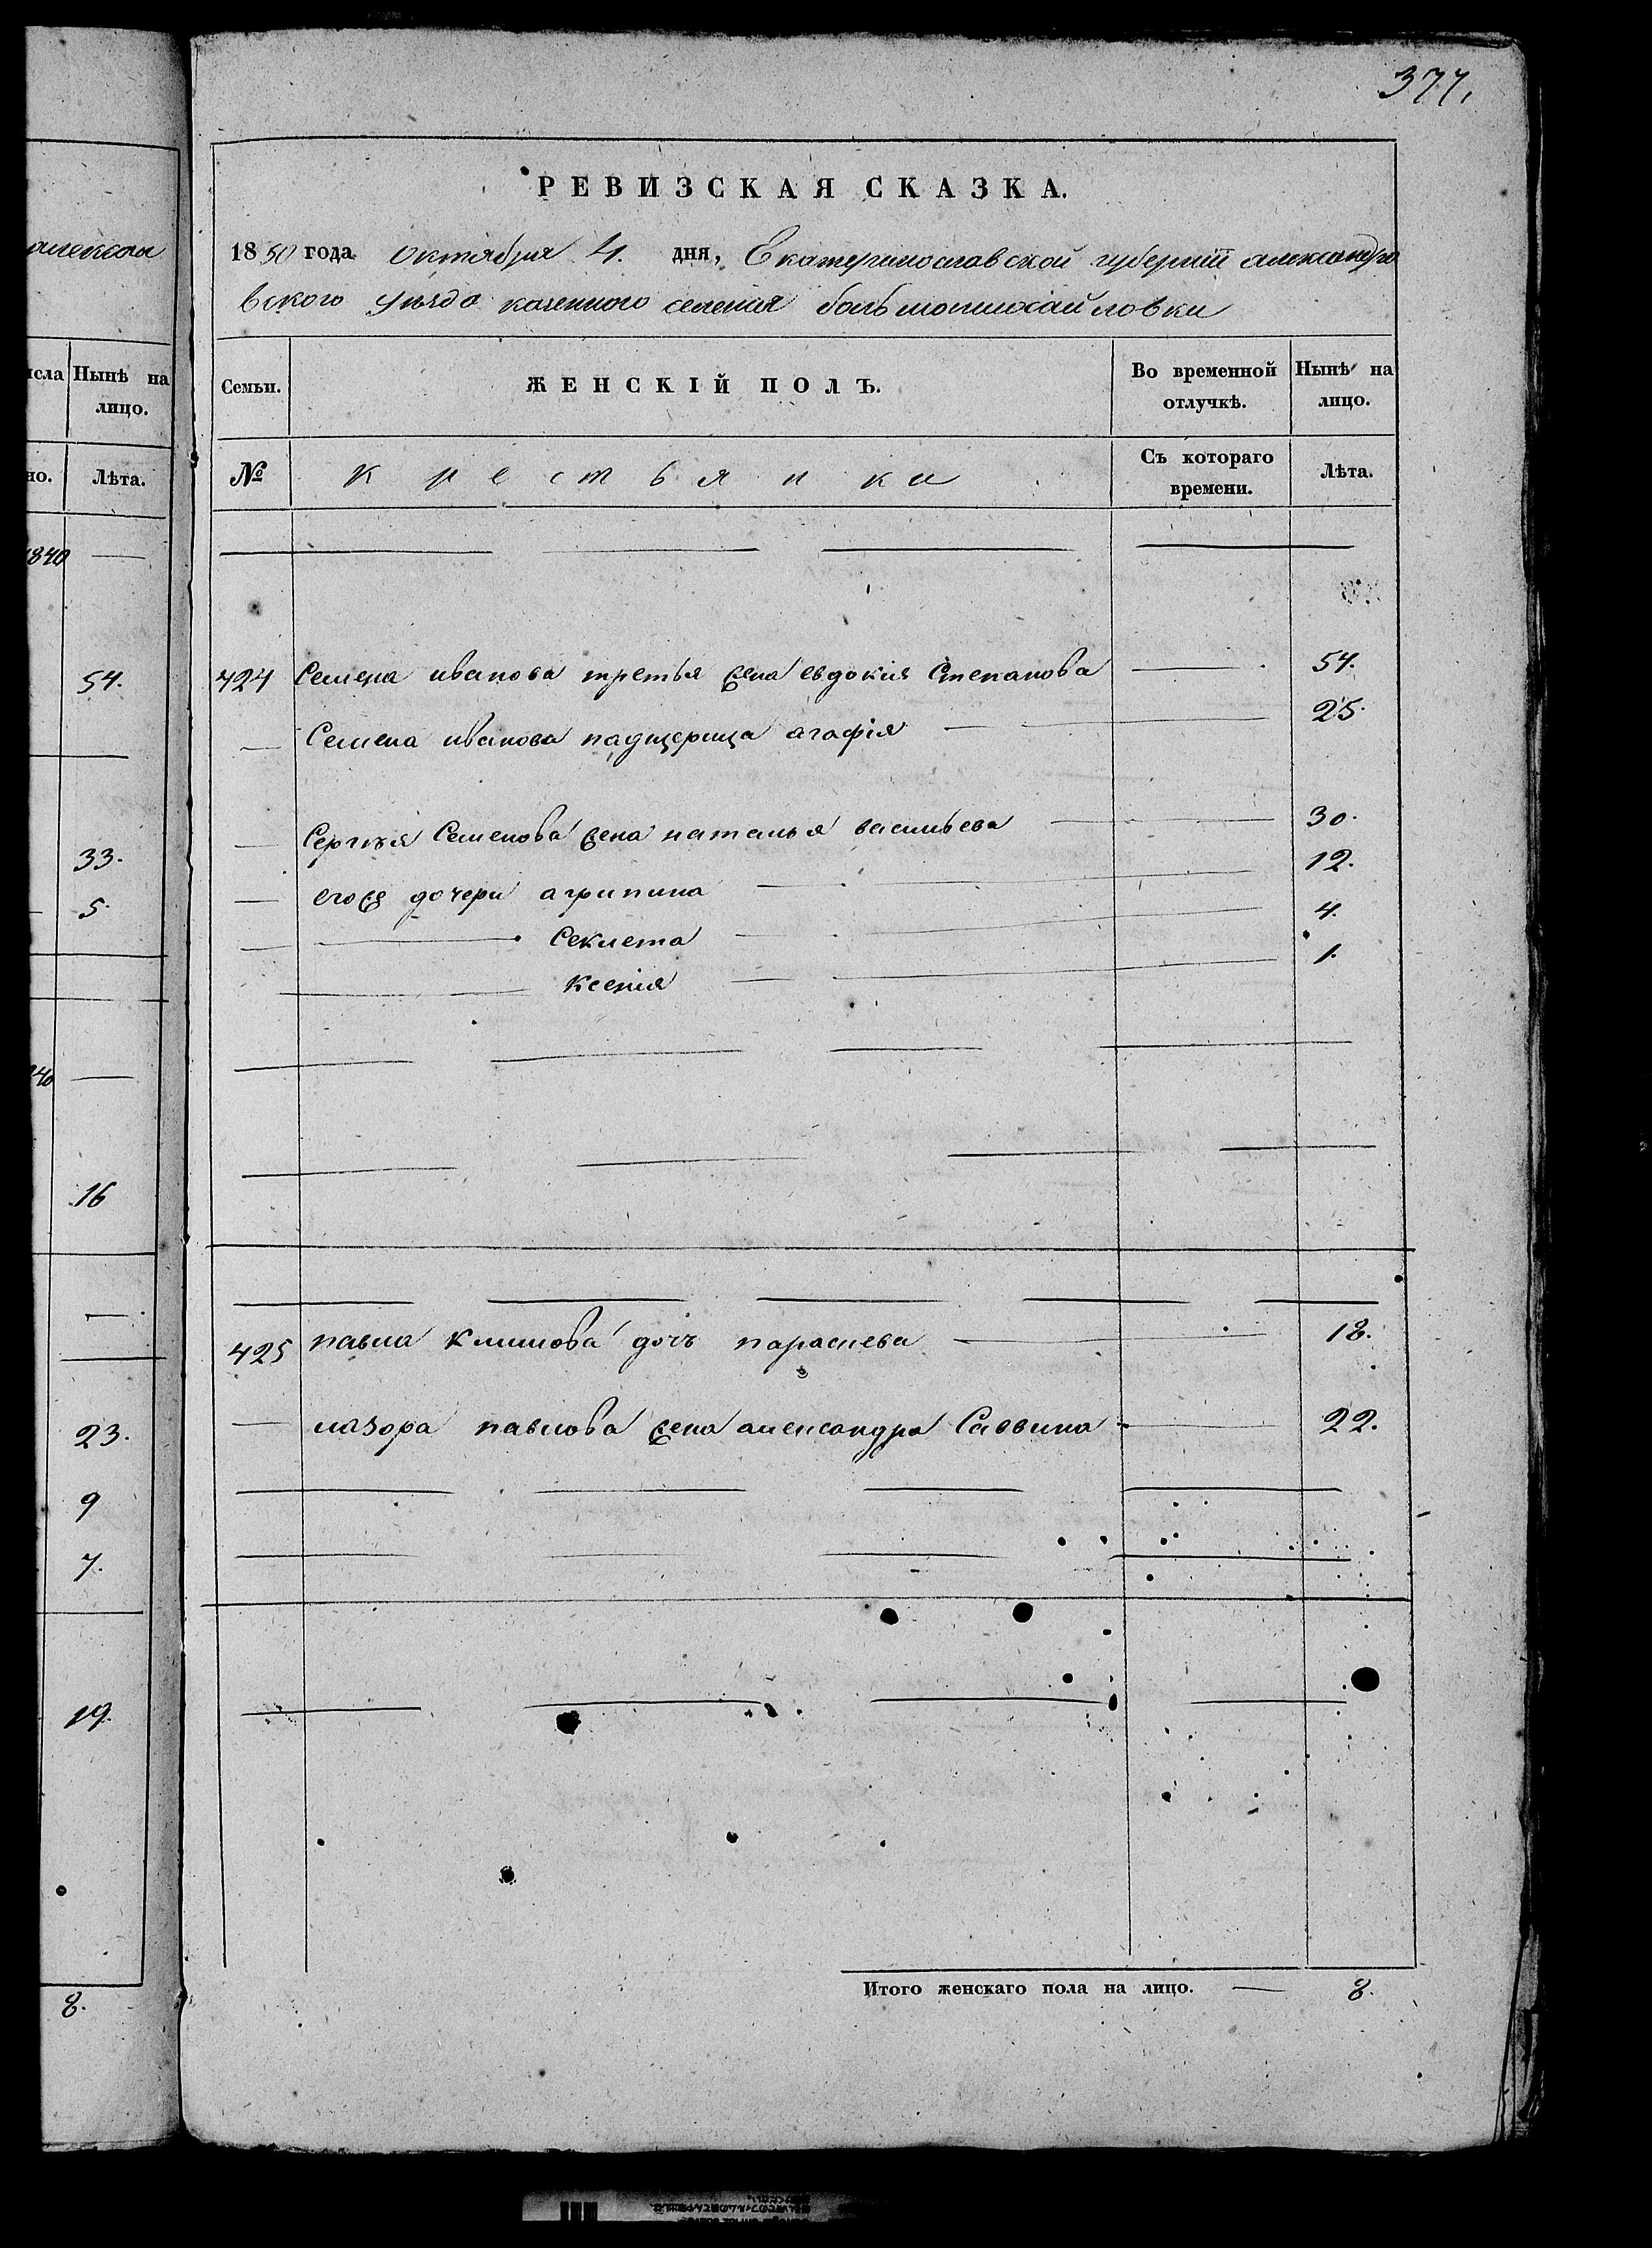 377,
РЕВИЗСКАЯ СКАЗКА.
1850 года октября 4. дня, Екатеринославской губернии александро
вского уезда казенного селения большомихайловки
Семьи. ЖЕНСКІЙ ПОЛЪ. Во временной отлучкѣ. Нынѣ на лицо.
№ крестьянки Съ котораго времени. Лѣта.
424 Семена иванова третья жена евдокия Степанова 54.
Семена иванова падщерица агафія 25.
Сергия Семенова жена наталья васильева 30.
егоже дочери агрипина 12.
Секлета 4.
Ксенія 1.
425 павла Климова дочь параскева 18.
лазора павлова жена александра Саввина 22.
Итого женскаго пола на лицо. 8.
алекса
исла Нынѣ на лицо.
но. Лѣта.
1840
54.
33.
5.
40
16
23.
9
7.
19.
8.